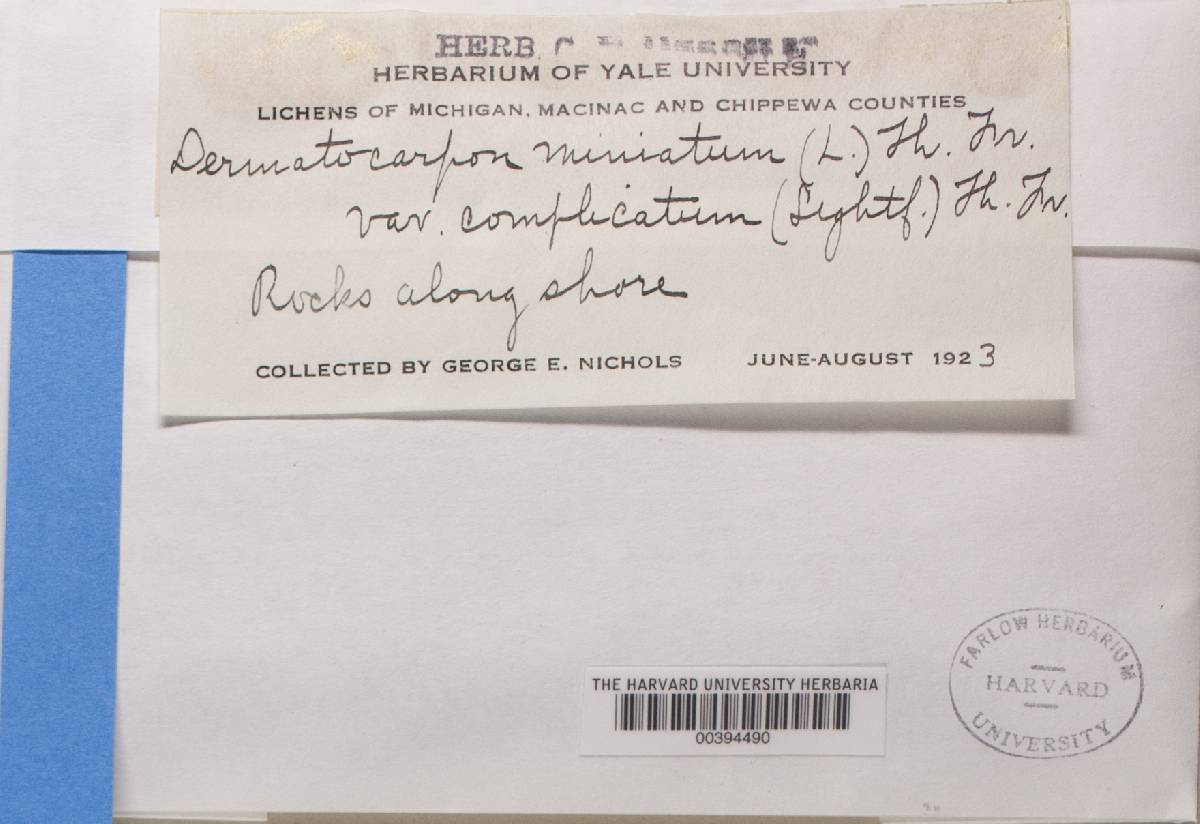 HERB. C.
HERBARIUM OF YALE UNIVERSITY
LICHENS OF MICHIGAN, MACINAC AND CHIPPEWA COUNTIES
Dermatocarpon miniatum (L.) Th. Fr.
var. complicatum (Lightf.) Th. Fr.
Rocks along shore
COLLECTED BY GEORGE E. NICHOLS JUNE-AUGUST 1923
THE HARVARD UNIVERSITY HERBARIA
00394490
FARLOW HERBARIUM
HARVARD
UNIVERSITY